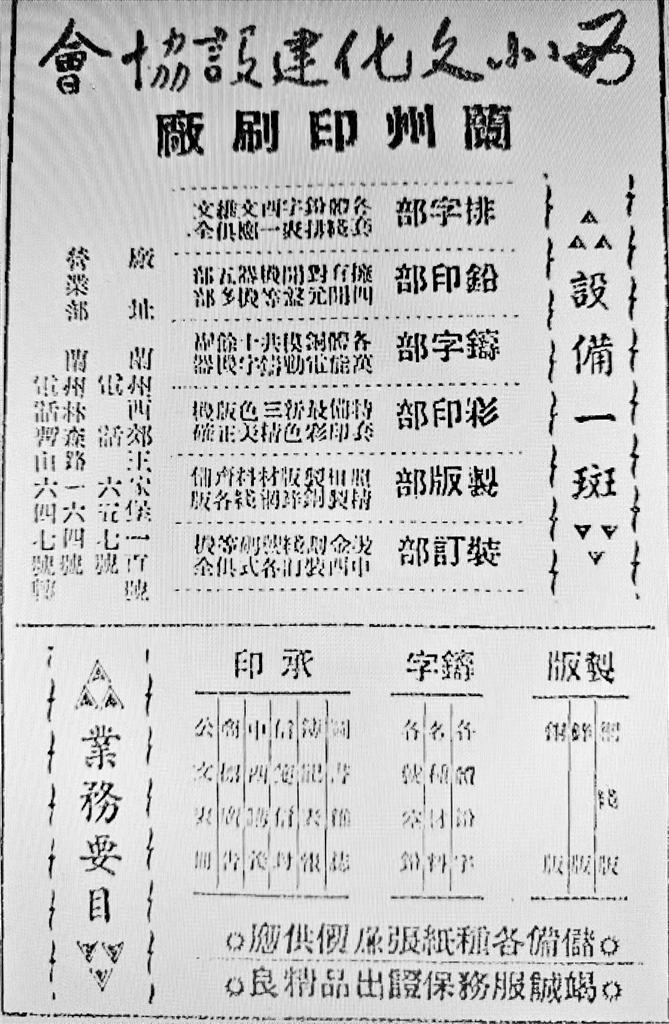 西北文化建設協會
蘭州印刷廠
設備一斑
排字部
各體鉛字西文維文
套綫排一應俱全
鉛印部
擁有對開機器五部
四開元盤等機多部
鑄字部
各體銅模共十餘副
萬能電動鑄字機器
彩印部
特備最新三色版機
套印彩色精美正確
製版部
照相製版材料齊備
精製銅鋅網綫各版
裝訂部
燙金劃綫號碼等機
中西裝訂各式俱全
廠址 蘭州西郊王家堡一百號
電話 六五七號
營業部 蘭州林森路一六四號
電話暫由六四七號轉
製版
網綫版
鋅版
銅版
鑄字
各體鉛字
各種材料
各號空鉛
承印
圖書雜誌
簿記表報
信箋信封
中西講義
商標廣告
公文表冊
業務要目
儲備各種紙張廉價供應
竭誠服務保證出品精良